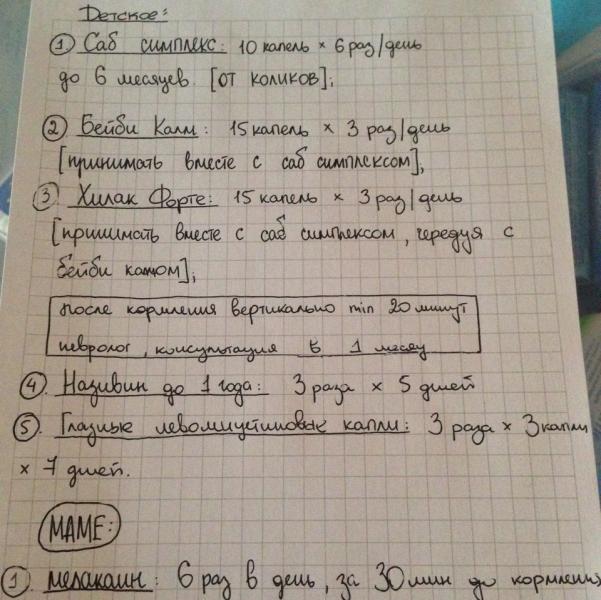 Детское:
① Саб симплекс: 10 капель × 6 раз/день
до 6 месяцев. [от коликов];
② Бейби Калм: 15 капель × 3 раз/день
[принимать вместе с саб симплексом];
③ Хилак Форте: 15 капель × 3 раз/день
[принимать вместе с саб симплексом, чередуя с
бейби калмом];
после кормления вертикально min 20 минут
невролог, консультация в 1 месяц
④. Називин до 1 года: 3 раза × 5 дней
⑤. Глазные левомицетиновые капли: 3 раза × 3 капли
× 7 дней.
МАМЕ:
①. мелакаин: 6 раз в день, за 30 мин до кормления